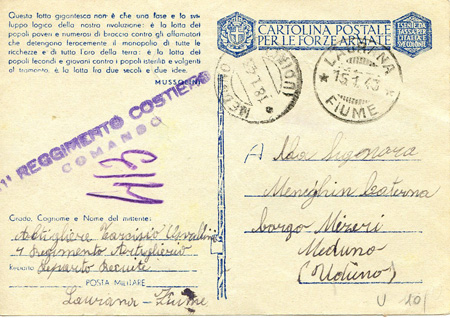 Questa lotta gigantesca non è che una fase e lo svi-
luppo logico della nostra rivoluzione: è la lotta dei
popoli poveri e numerosi di braccia contro gli affamatori
che detengono ferocemente il monopolio di tutte le
ricchezze e di tutto l'oro della terra: è la lotta dei
popoli fecondi e giovani contro i popoli isteriliti e volgenti
al tramonto, è la lotta fra due secoli e due idee.
MUSSOLINI
CARTOLINA POSTALE
PER LE FORZE ARMATE
ESENTE DA
TASSA PER
L'ITALIA E
SUE COLONIE
MEDUNO
18.1.43
FIUME
REGGIMENTO COSTIERO
COMANDO
A
Meneghin Caterna
borgo Mizeri
Meduno
(Udine)
Grado, Cognome e Nome del mittente:
Artigliere Tarcisio
Regimento Artiglieria
Reparto Reparto Reclute
POSTA MILITARE
Laurana - Fiume
U 10/